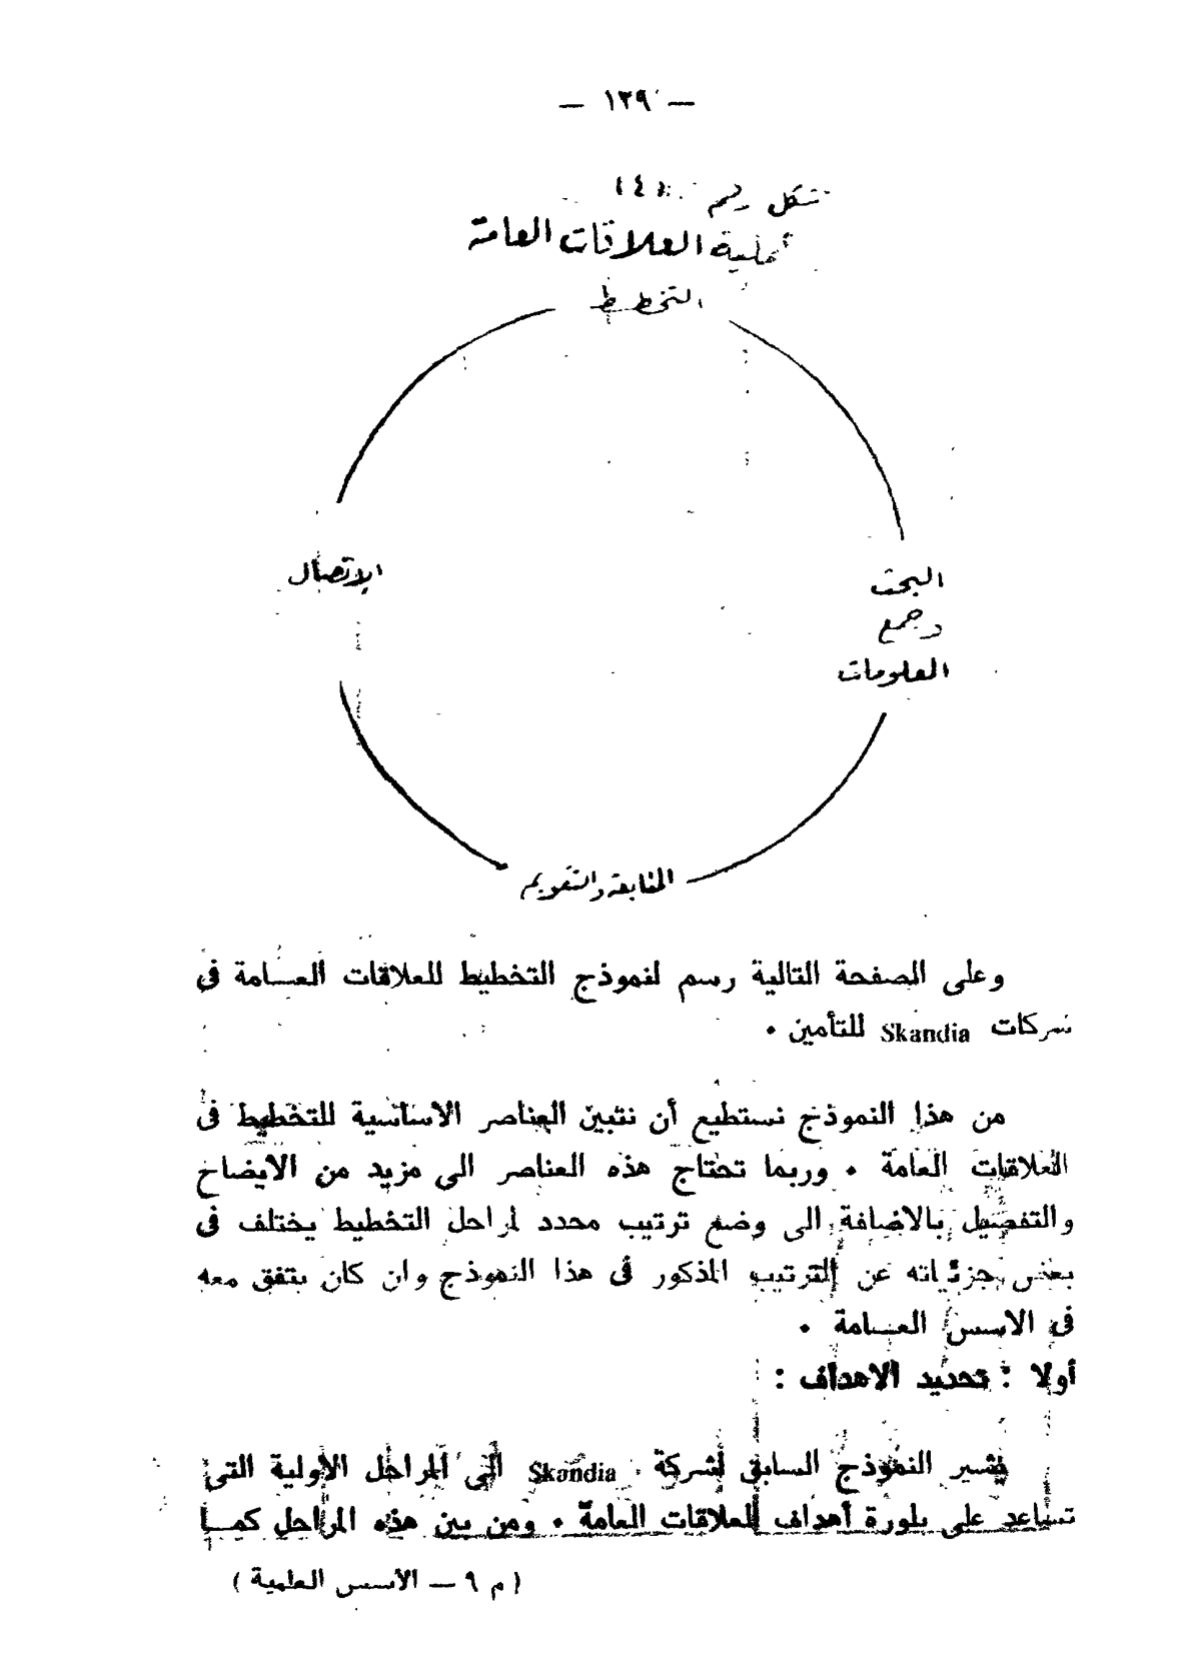 — ١٢٩ —
شكل رقم (٤)
عملية العلاقات العامة
التخطيط
الاتصال
البحث
وجمع
المعلومات
المتابعة والتقويم
وعلى الصفحة التالية رسم لنموذج التخطيط للعلاقات العسامة فى
شركات Skandia للتأمين .
من هذا النموذج نستطيع أن نتبين العناصر الاساسية للتخطيط فى
العلاقات العامة . وربما تحتاج هذه العناصر الى مزيد من الايضاح
والتفصيل بالاضافة الى وضع ترتيب محدد لمراحل التخطيط يختلف فى
بعض جزئياته عن الترتيب المذكور فى هذا النموذج وان كان يتفق معه
فى الاسس العسامة .
أولا : تحديد الاهداف :
يشير النموذج السابق لشركة Skandia الى المراحل الأولية التى
تساعد على بلورة أهداف العلاقات العامة . ومن بين هذه المراحل كمسا
( م ٩ — الأسس العلمية )